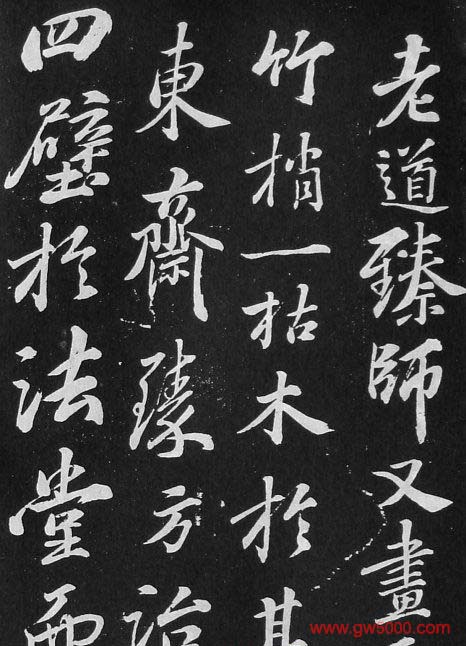 老道臻師又畫
竹梢一枯木於其
東齋臻方治
四壁於法堂而
www.gw5000.com